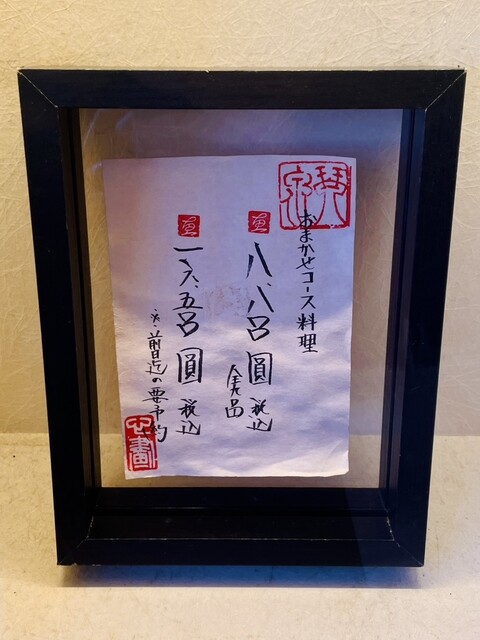 おまかせコース料理
八、八〇〇圓 税込
一六、五〇〇圓 税込
※前日迄の要予約